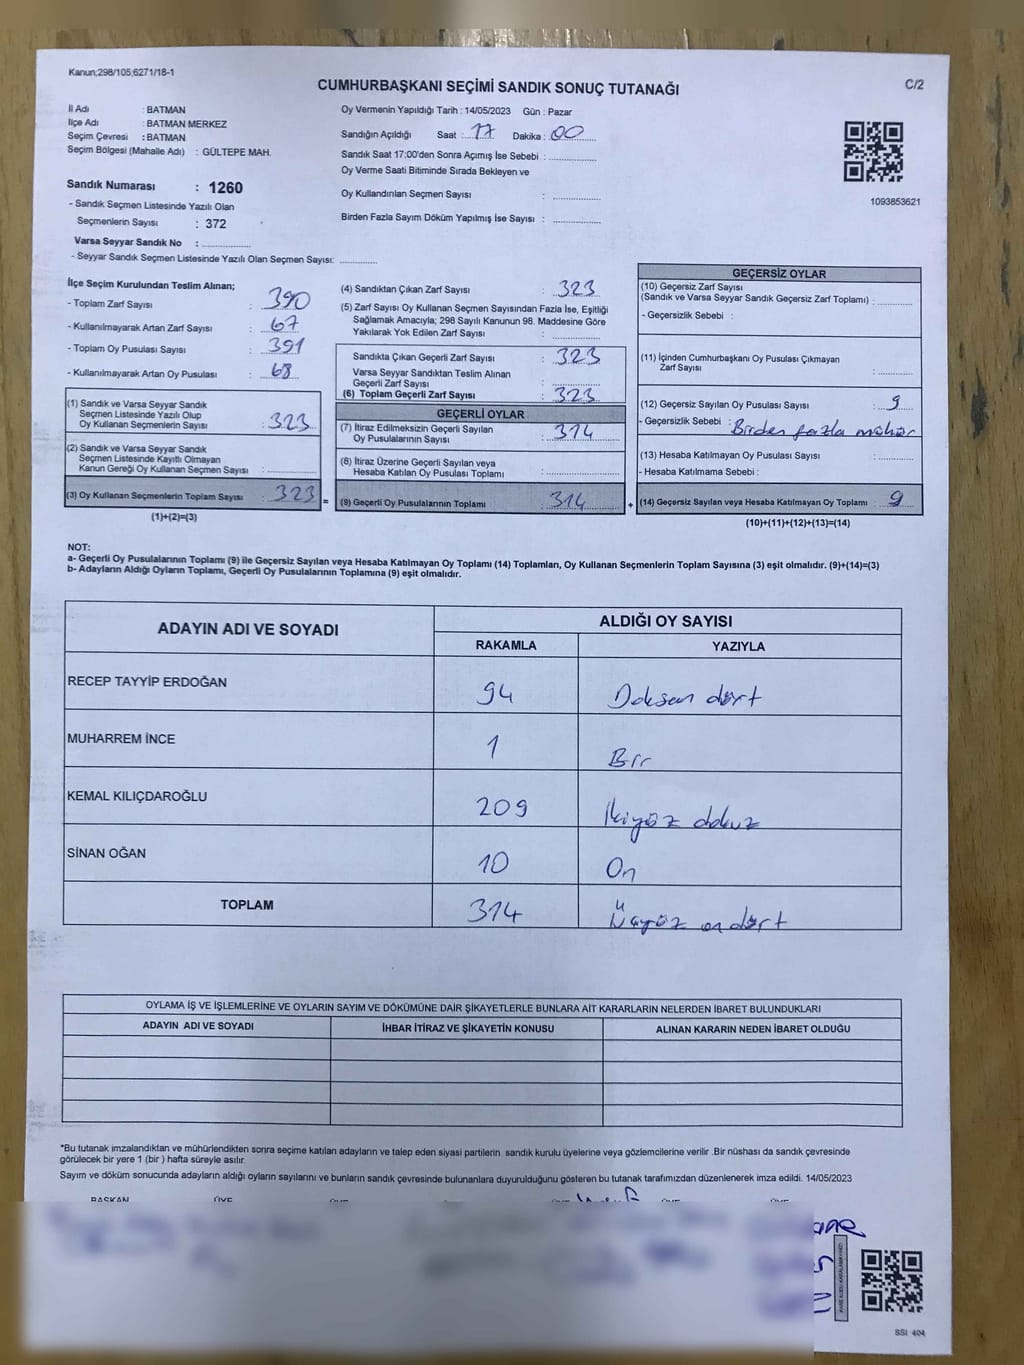 Kanun;298/105;6271/18-1
CUMHURBAŞKANI SEÇİMİ SANDIK SONUÇ TUTANAĞI
C/2
İl Adı : BATMAN
İlçe Adı : BATMAN MERKEZ
Seçim Çevresi : BATMAN
Seçim Bölgesi (Mahalle Adı) : GÜLTEPE MAH.
Sandık Numarası : 1260
- Sandık Seçmen Listesinde Yazılı Olan
Seçmenlerin Sayısı : 372
Varsa Seyyar Sandık No :
- Seyyar Sandık Seçmen Listesinde Yazılı Olan Seçmen Sayısı:
Oy Vermenin Yapıldığı Tarih : 14/05/2023 Gün : Pazar
Sandığın Açıldığı Saat : 17 Dakika : 00
Sandık Saat 17:00'den Sonra Açımış İse Sebebi :
Oy Verme Saati Bitiminde Sırada Bekleyen ve
Oy Kullandırılan Seçmen Sayısı :
Birden Fazla Sayım Döküm Yapılmış İse Sayısı :
1093853621
İlçe Seçim Kurulundan Teslim Alınan;
- Toplam Zarf Sayısı : 390
- Kullanılmayarak Artan Zarf Sayısı : 67
- Toplam Oy Pusulası Sayısı : 391
- Kullanılmayarak Artan Oy Pusulası : 68
(1) Sandık ve Varsa Seyyar Sandık
Seçmen Listesinde Yazılı Olup
Oy Kullanan Seçmenlerin Sayısı : 323
(2) Sandık ve Varsa Seyyar Sandık
Seçmen Listesinde Kayıtlı Olmayan
Kanun Gereği Oy Kullanan Seçmen Sayısı :
(3) Oy Kullanan Seçmenlerin Toplam Sayısı : 323 =
(1)+(2)=(3)
(4) Sandıktan Çıkan Zarf Sayısı : 323
(5) Zarf Sayısı Oy Kullanan Seçmen Sayısından Fazla İse, Eşitliği
Sağlamak Amacıyla; 298 Sayılı Kanunun 98. Maddesine Göre
Yakılarak Yok Edilen Zarf Sayısı :
Sandıkta Çıkan Geçerli Zarf Sayısı : 323
Varsa Seyyar Sandıktan Teslim Alınan
Geçerli Zarf Sayısı :
(6) Toplam Geçerli Zarf Sayısı : 323
GEÇERLİ OYLAR
(7) İtiraz Edilmeksizin Geçerli Sayılan
Oy Pusulalarının Sayısı : 314
(8) İtiraz Üzerine Geçerli Sayılan veya
Hesaba Katılan Oy Pusulası Toplamı :
(9) Geçerli Oy Pusulalarının Toplamı : 314 +
GEÇERSİZ OYLAR
(10) Geçersiz Zarf Sayısı
(Sandık ve Varsa Seyyar Sandık Geçersiz Zarf Toplamı) :
- Geçersizlik Sebebi :
(11) İçinden Cumhurbaşkanı Oy Pusulası Çıkmayan
Zarf Sayısı :
(12) Geçersiz Sayılan Oy Pusulası Sayısı : 9
- Geçersizlik Sebebi : Birden fazla mühür
(13) Hesaba Katılmayan Oy Pusulası Sayısı :
- Hesaba Katılmama Sebebi :
(14) Geçersiz Sayılan veya Hesaba Katılmayan Oy Toplamı : 9
(10)+(11)+(12)+(13)=(14)
NOT:
a- Geçerli Oy Pusulalarının Toplamı (9) ile Geçersiz Sayılan veya Hesaba Katılmayan Oy Toplamı (14) Toplamları, Oy Kullanan Seçmenlerin Toplam Sayısına (3) eşit olmalıdır. (9)+(14)=(3)
b- Adayların Aldığı Oyların Toplamı, Geçerli Oy Pusulalarının Toplamına (9) eşit olmalıdır.
ADAYIN ADI VE SOYADI
ALDIĞI OY SAYISI
RAKAMLA YAZIYLA
RECEP TAYYİP ERDOĞAN 94 Doksan dört
MUHARREM İNCE 1 Bir
KEMAL KILIÇDAROĞLU 209 İkiyüz dokuz
SİNAN OĞAN 10 On
TOPLAM 314 Üçyüz on dört
OYLAMA İŞ VE İŞLEMLERİNE VE OYLARIN SAYIM VE DÖKÜMÜNE DAİR ŞİKAYETLERLE BUNLARA AİT KARARLARIN NELERDEN İBARET BULUNDUKLARI
ADAYIN ADI VE SOYADI İHBAR İTİRAZ VE ŞİKAYETİN KONUSU ALINAN KARARIN NEDEN İBARET OLDUĞU
*Bu tutanak imzalandıktan ve mühürlendikten sonra seçime katılan adayların ve talep eden siyasi partilerin sandık kurulu üyelerine veya gözlemcilerine verilir .Bir nüshası da sandık çevresinde
görülecek bir yere 1 (bir ) hafta süreyle asılır.
Sayım ve döküm sonucunda adayların aldığı oyların sayılarını ve bunların sandık çevresinde bulunanlara duyurulduğunu gösteren bu tutanak tarafımızdan düzenlenerek imza edildi. 14/05/2023
BAŞKAN ÜYE ÜYE ÜYE ÜYE
SSI 404